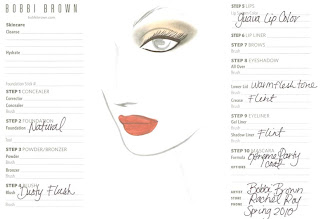 BOBBI BROWN
bobbibrown.com
Skincare
Cleanse
Hydrate
Foundation
STEP 1 CONCEALER
Corrector
Concealer
Brush
STEP 2 FOUNDATION
Foundation Natural
Tool
STEP 3 POWDER/BRONZER
Powder
Bronzer
Brush
STEP 4 BLUSH
Blush Dusty Flush
Brush
STEP 5 LIPS
Guava Lip Color
Brush
STEP 6 LIP LINER
STEP 7 BROWS
Brush
STEP 8 EYESHADOW
All Over
Brush
Lower Lid Warm flesh tone
Crease Flint
Brush
STEP 9 EYELINER
Gel Liner
Brush
Shadow Liner Flint
Brush
STEP 10 MASCARA
Formula Extreme Party
OPTIONS
ARTIST Bobbi Brown
STORE Rachel Roy
PHONE Spring 2010